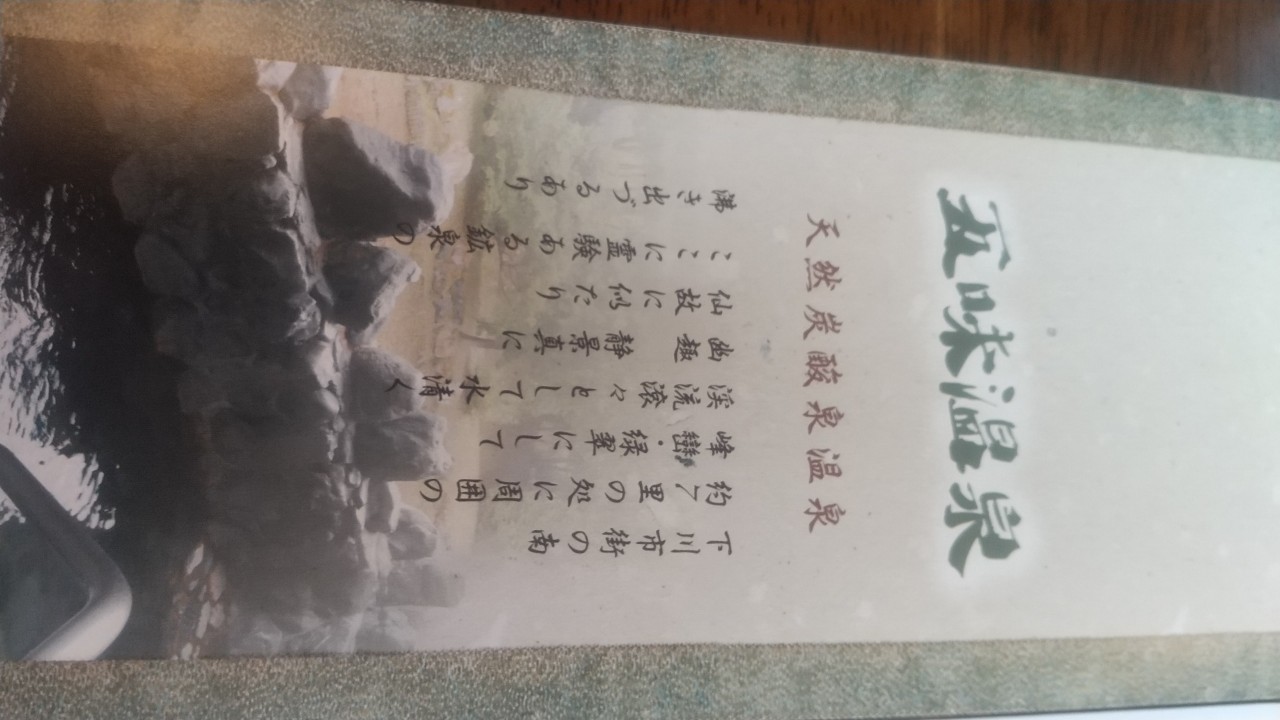 五味温泉
天然炭酸泉温泉
下川市街の南
約一里の処に周囲の
峰巒・緑翠にして
渓流滾々として水清く
幽趣静景真に
仙故に似たり
ここに霊験ある鉱泉の
沸き出づるあり